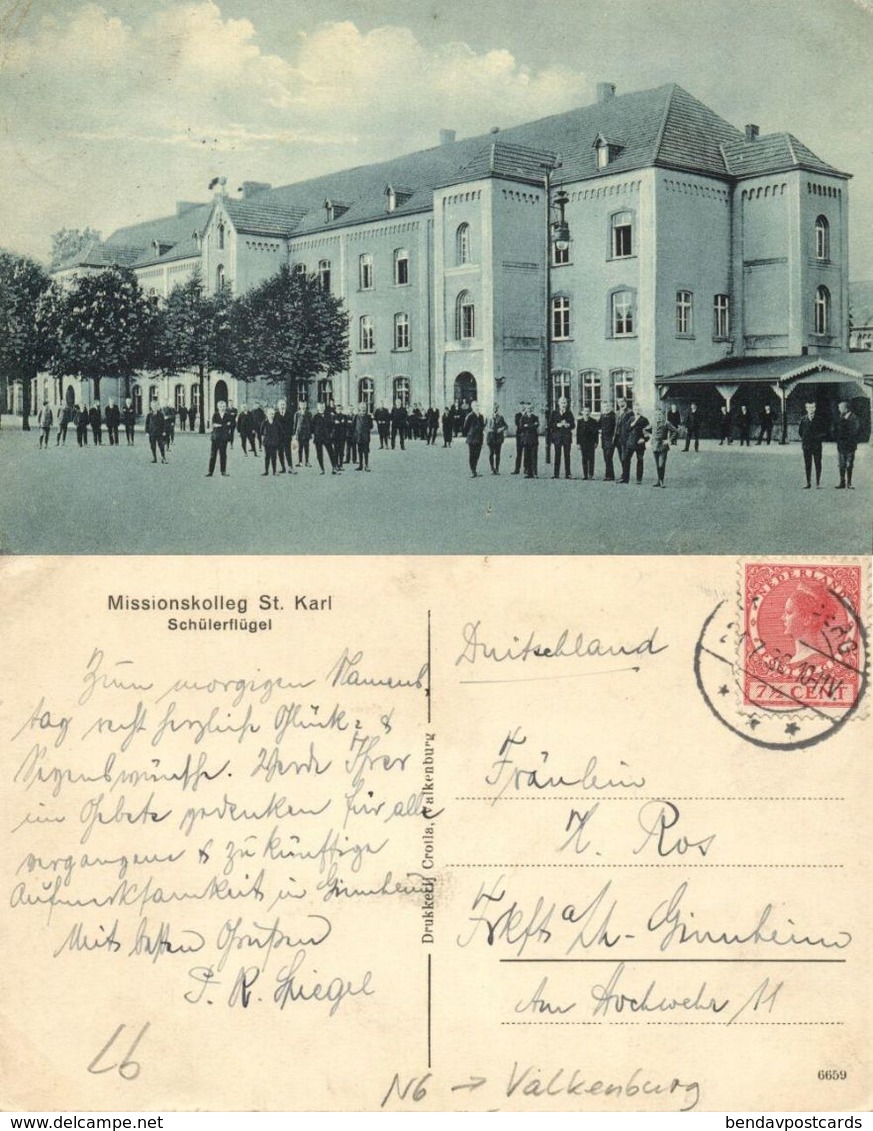 Missionskolleg St. Karl
Schülerflügel
Zum morgigen Namens-
tag recht herzliche Glück- &
Segenswünsche. Werde Ihrer
im Gebete gedenken für alle
vergangene & zukünftige
Aufmerksamkeit in Ginnheim
Mit besten Grüßen
P. R. Spiegel
Drukkerij Crolla, Valkenburg
Duitschland
NEDERLAND
7½ CENT
Fräulein
H. Ros
Frkft a/M - Ginnheim
Am Hochwehr 11
6659
N6 → Valkenburg
bendavpostcards